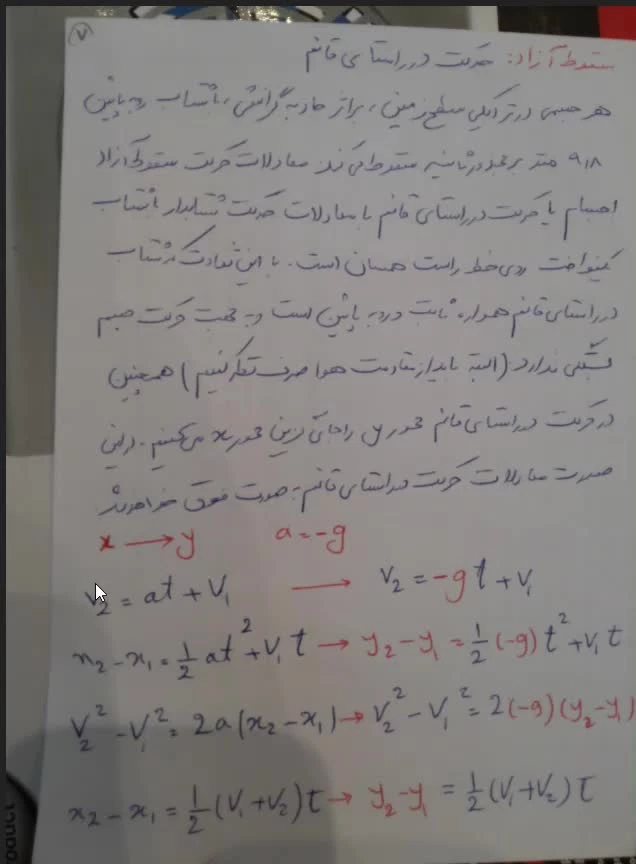 ۷
سقوط آزاد: حرکت در راستای قائم
هر جسمی در نزدیکی سطح زمین، بر اثر جاذبه گرانش، با شتاب رو به پایین
۹٫۸ متر بر مجذور ثانیه سقوط می‌کند. معادلات حرکت سقوط آزاد
اجسام یا حرکت در راستای قائم با معادلات حرکت شتابدار با شتاب
یکنواخت روی خط راست همسان است. با این تفاوت که شتاب
در راستای قائم همواره ثابت و رو به پایین است و به جهت حرکت جسم
بستگی ندارد. (البته باید از مقاومت هوا صرف نظر کنیم) همچنین
در حرکت در راستای قائم محور y را جایگزین محور x می‌کنیم. در این
صورت معادلات حرکت در راستای قائم به صورت فوق خواهد شد
x → y a = -g
v₂ = at + v₁ → v₂ = -gt + v₁
x₂ - x₁ = 1/2 at² + v₁t → y₂ - y₁ = 1/2 (-g) t² + v₁t
v₂² - v₁² = 2a(x₂ - x₁) → v₂² - v₁² = 2(-g)(y₂ - y₁)
x₂ - x₁ = 1/2 (v₁ + v₂) t → y₂ - y₁ = 1/2 (v₁ + v₂) t